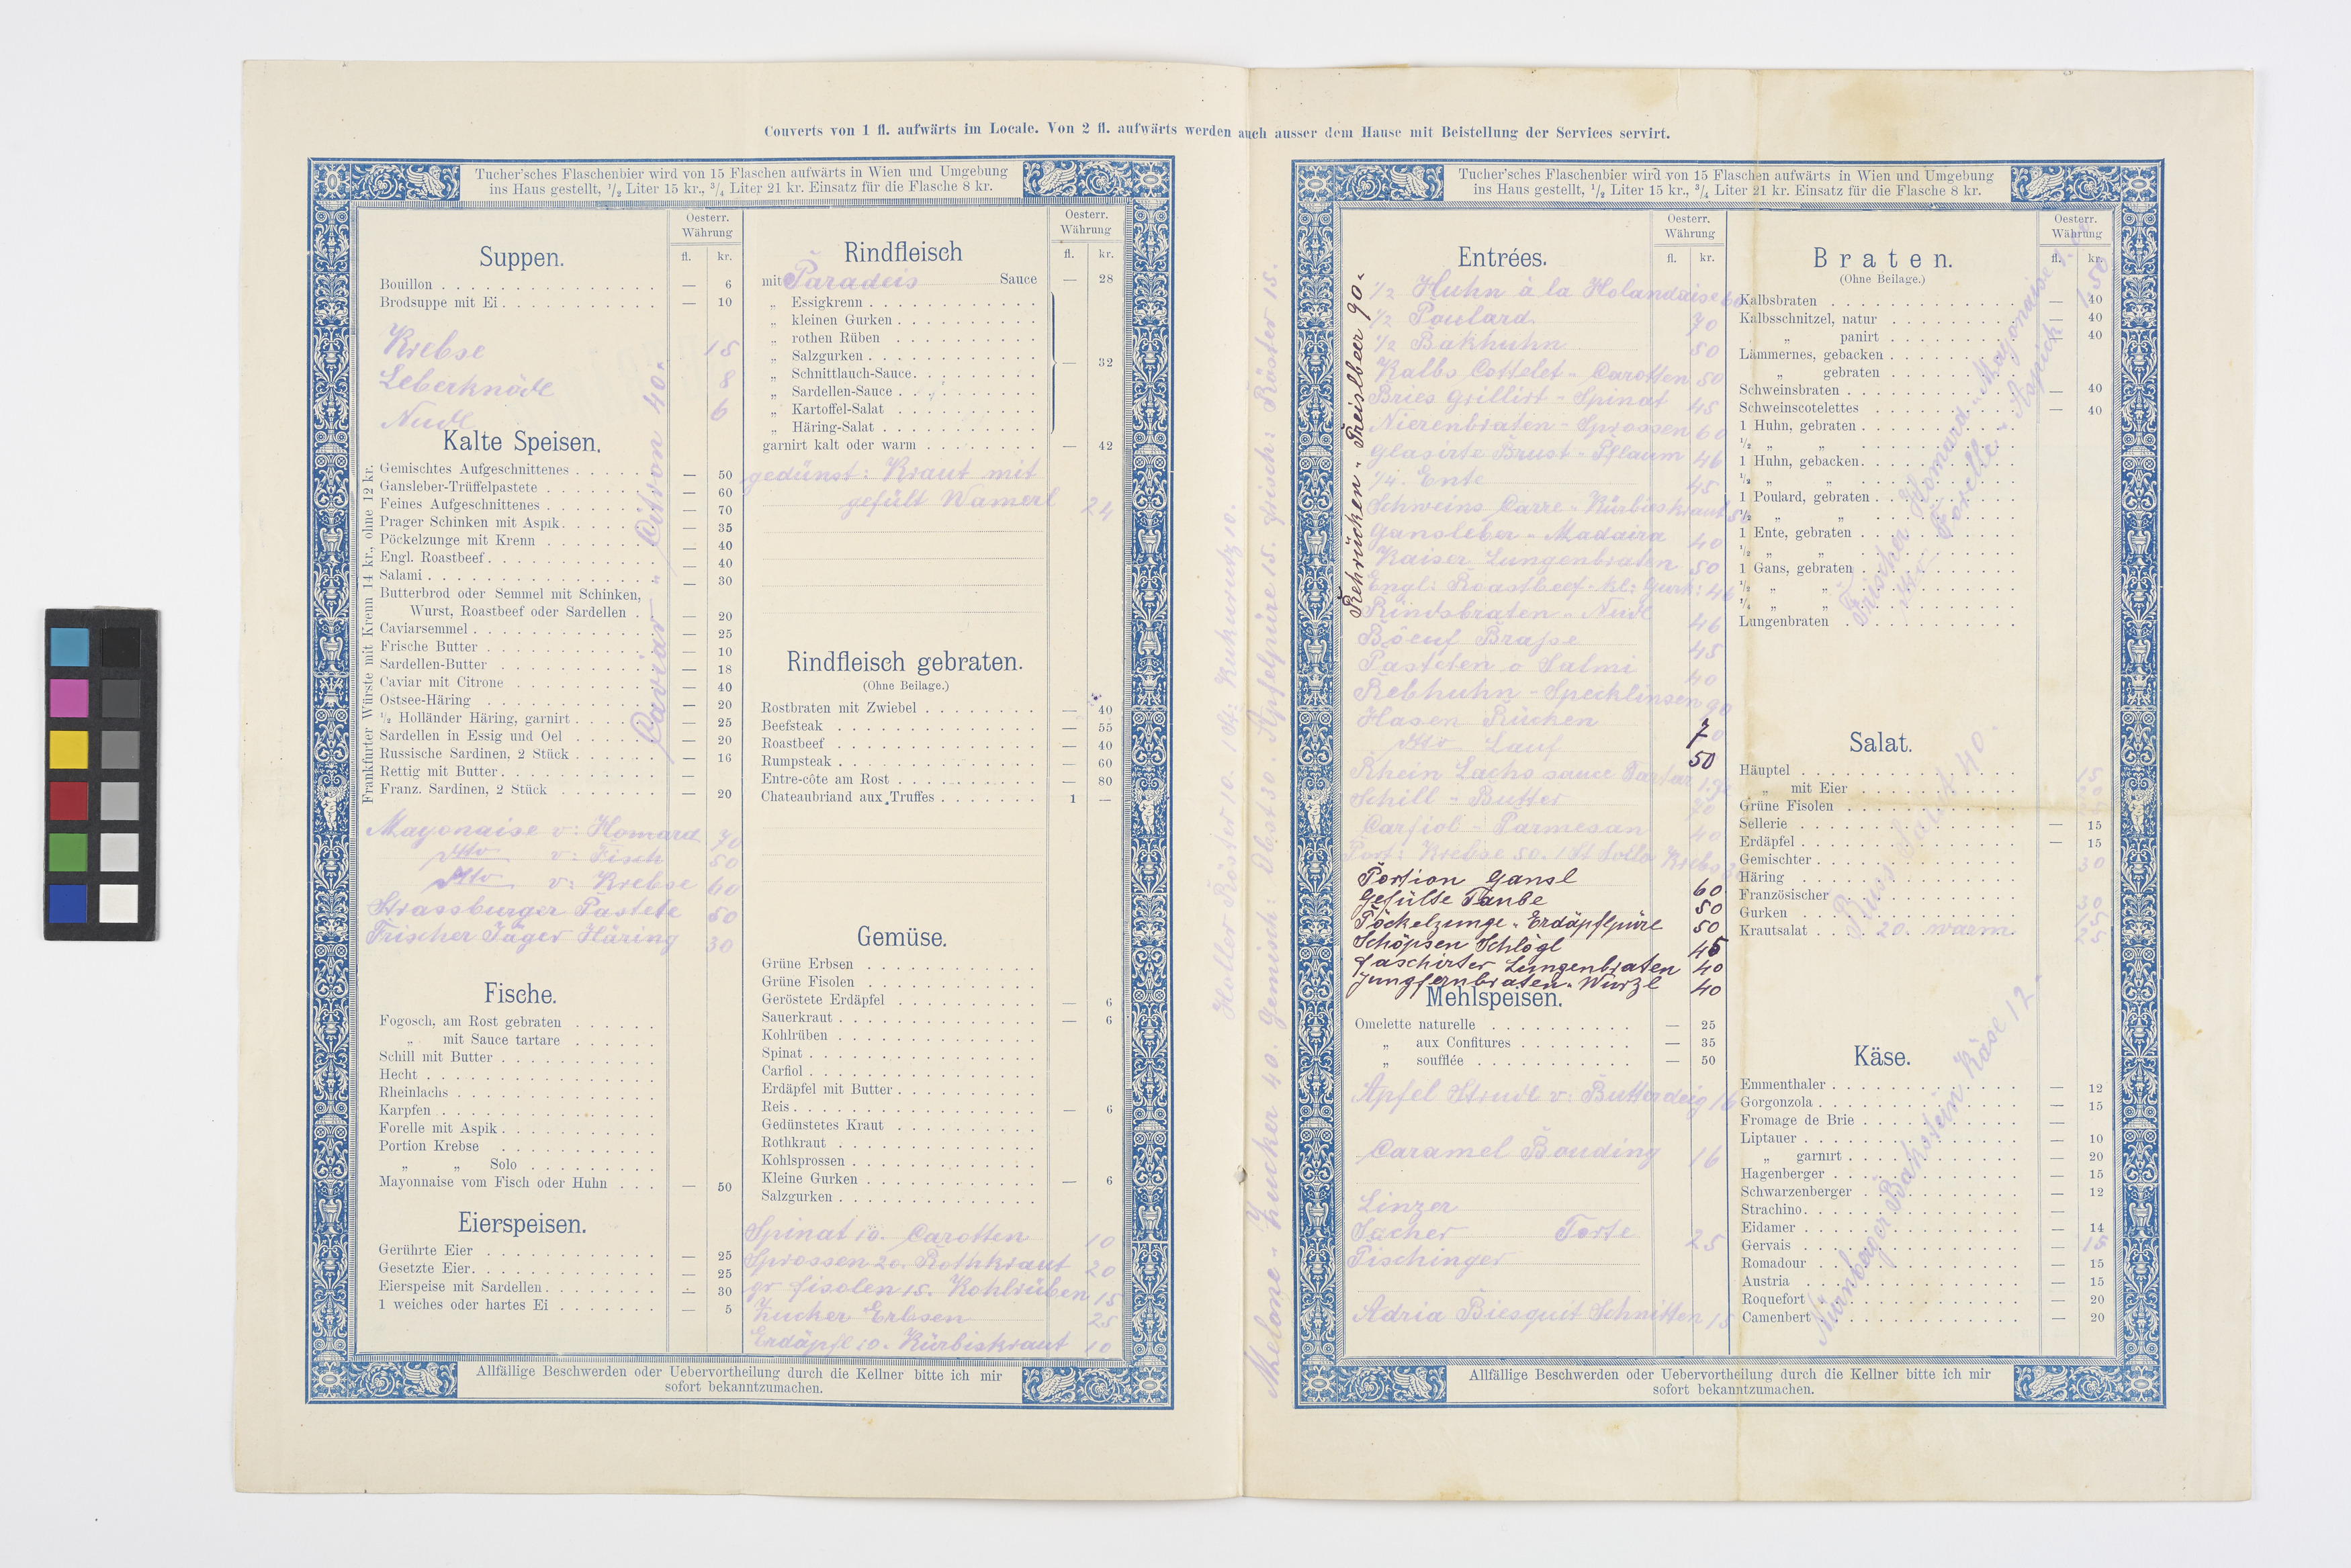 Couverts von 1 fl. aufwärts im Locale. Von 2 fl. aufwärts werden auch ausser dem Hause mit Beistellung der Services servirt.
Tucher'sches Flaschenbier wird von 15 Flaschen aufwärts in Wien und Umgebung
ins Haus gestellt, 1/2 Liter 15 kr., 3/4 Liter 21 kr. Einsatz für die Flasche 8 kr.
Oesterr.
Währung
fl. kr.
Suppen.
Bouillon — 6
Brodsuppe mit Ei — 10
Krebse 18
Leberknödl 8
Nudl 6
Kalte Speisen.
Gemischtes Aufgeschnittenes — 50
Gansleber-Trüffelpastete — 60
Feines Aufgeschnittenes — 70
Prager Schinken mit Aspik — 35
Pöckelzunge mit Krenn — 40
Engl. Roastbeef — 40
Salami — 30
Butterbrod oder Semmel mit Schinken,
Wurst, Roastbeef oder Sardellen — 20
Caviarsemmel — 25
Frische Butter — 10
Sardellen-Butter — 18
Caviar mit Citrone — 40
Ostsee-Häring — 20
1/2 Holländer Häring, garnirt — 25
Sardellen in Essig und Oel — 20
Russische Sardinen, 2 Stück — 16
Rettig mit Butter —
Franz. Sardinen, 2 Stück — 20
Frankfurter Würste mit Krenn 14 kr., ohne 12 kr.
Caviar - Citron 40.
Mayonaise v: Homard 70
dtto v: Fisch 50
dtto v: Krebse 60
Strassburger Pastete 50
Frischer Jäger Häring 30
Fische.
Fogosch, am Rost gebraten
„ mit Sauce tartare
Schill mit Butter
Hecht
Rheinlachs
Karpfen
Forelle mit Aspik
Portion Krebse
„ „ Solo
Mayonnaise vom Fisch oder Huhn — 50
Eierspeisen.
Gerührte Eier — 25
Gesetzte Eier — 25
Eierspeise mit Sardellen — 30
1 weiches oder hartes Ei — 5
Oesterr.
Währung
fl. kr.
Rindfleisch
mit Paradeis Sauce — 28
„ Essigkrenn
„ kleinen Gurken
„ rothen Rüben
„ Salzgurken — 32
„ Schnittlauch-Sauce
„ Sardellen-Sauce
„ Kartoffel-Salat
„ Häring-Salat
garnirt kalt oder warm — 42
gedünst: Kraut mit
gefült Wamerl 24
Rindfleisch gebraten.
(Ohne Beilage.)
Rostbraten mit Zwiebel — 40
Beefsteak — 55
Roastbeef — 40
Rumpsteak — 60
Entre-côte am Rost — 80
Chateaubriand aux Truffes 1 —
Gemüse.
Grüne Erbsen
Grüne Fisolen
Geröstete Erdäpfel — 6
Sauerkraut — 6
Kohlrüben
Spinat
Carfiol
Erdäpfel mit Butter
Reis — 6
Gedünstetes Kraut
Rothkraut
Kohlsprossen
Kleine Gurken — 6
Salzgurken
Spinat 10. Carotten 10
Sprossen 20. Rothkraut 20
gr fisolen 15. Kohlrüben 15
Zucker Erbsen 25
Erdäpfl 10. Kürbiskraut 10
Allfällige Beschwerden oder Uebervortheilung durch die Kellner bitte ich mir
sofort bekanntzumachen.
Holler Röster 10. 1 St: Kukurutz 10.
Melone - Zucker 40. Gemisch: Obst 30. Apfelpüre 15. Zwisch: Röster 15.
Tucher'sches Flaschenbier wird von 15 Flaschen aufwärts in Wien und Umgebung
ins Haus gestellt, 1/2 Liter 15 kr., 3/4 Liter 21 kr. Einsatz für die Flasche 8 kr.
Oesterr.
Währung
fl. kr.
Entrées.
Rehrücken - Preislbeer 90.
1/2 Huhn à la Holandaise 60
1/2 Poulard 70
1/2 Bakhuhn 50
Kalbs Cottelet - Carotten 50
Bries grillirt - Spinat 45
Nierenbraten - Sprossen 60
glasirte Brust - Pflaum 46
1/4. Ente 45
Schweins Carre - Kürbiskraut
Gansleber - Madaira 40
Kaiser Lungenbraten 50
Engl: Roastbeef - kl: Gurk: 46
Rindsbraten - Nudl 46
Böeuf Braise 45
Pasteten o Salmi 40
Rebhuhn - Specklinsen 90
Hasen Rücken 70
dtto Lauf 50
Rhein Lachs sauce Tartar
Schill - Butter 70
Carfiol - Parmesan 40
Port: Krebse 50. 1 St Solo Krebs
Portion Gansl 60
Gefülte Taube 50
Pöckelzunge - Erdäpflpüre 50
Schöpsen Schlögl 45
faschirter Lungenbraten 40
Jungfernbraten - Wurzl 40
Mehlspeisen.
Omelette naturelle — 25
„ aux Confitures — 35
„ soufflée — 50
Apfel Strudl v: Butterdeig 16
Caramel Bouding 16
Linzer
Sacher Torte 25
Pischinger
Adria Biesquit Schnitten 15
Oesterr.
Währung
fl. kr.
Braten.
(Ohne Beilage.)
Kalbsbraten — 40
Kalbsschnitzel, natur — 40
„ panirt — 40
Lämmernes, gebacken
„ gebraten
Schweinsbraten — 40
Schweinscotelettes — 40
1 Huhn, gebraten
1/2 „ „
1 Huhn, gebacken
1/2 „ „
1 Poulard, gebraten
1/2 „ „
1 Ente, gebraten
1/2 „ „
1 Gans, gebraten
1/2 „ „
1/4 „ „
Lungenbraten
Frischer Homard - Mayonaise
dtto Forelle - Aspick 1.50
Salat.
Häuptel 15
„ mit Eier
Grüne Fisolen
Sellerie — 15
Erdäpfel — 15
Gemischter 30
Häring
Französischer 30
Gurken
Krautsalat 20. warm. 25
Russ Salat 40.
Käse.
Emmenthaler — 12
Gorgonzola — 15
Fromage de Brie —
Liptauer — 10
„ garnirt — 20
Hagenberger — 15
Schwarzenberger — 12
Strachino —
Eidamer — 14
Gervais — 15
Romadour — 15
Austria — 15
Roquefort — 20
Camenbert — 20
Nürnberger Bakstein Käse 12
Allfällige Beschwerden oder Uebervortheilung durch die Kellner bitte ich mir
sofort bekanntzumachen.